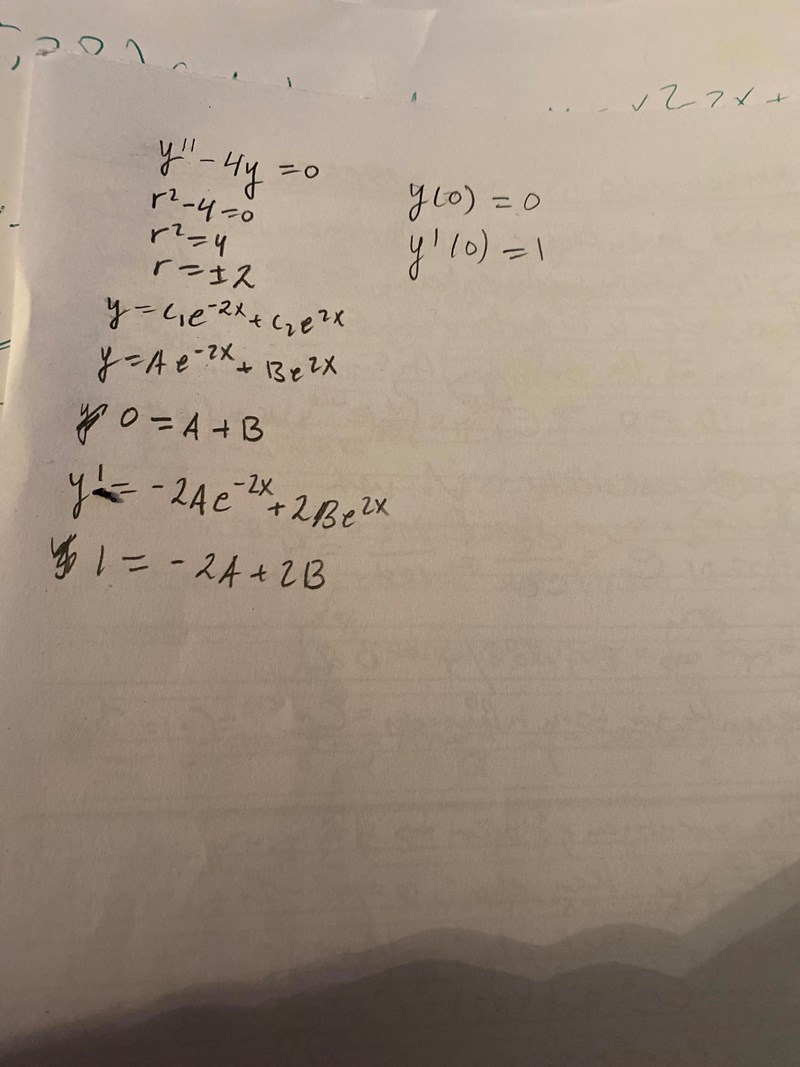 y'' - 4y = 0
r² - 4 = 0
r² = 4
r = ± 2
y(0) = 0
y'(0) = 1
y = c₁e⁻²ˣ + c₂e²ˣ
y = Ae⁻²ˣ + Be²ˣ
0 = A + B
y' = -2Ae⁻²ˣ + 2Be²ˣ
1 = -2A + 2B